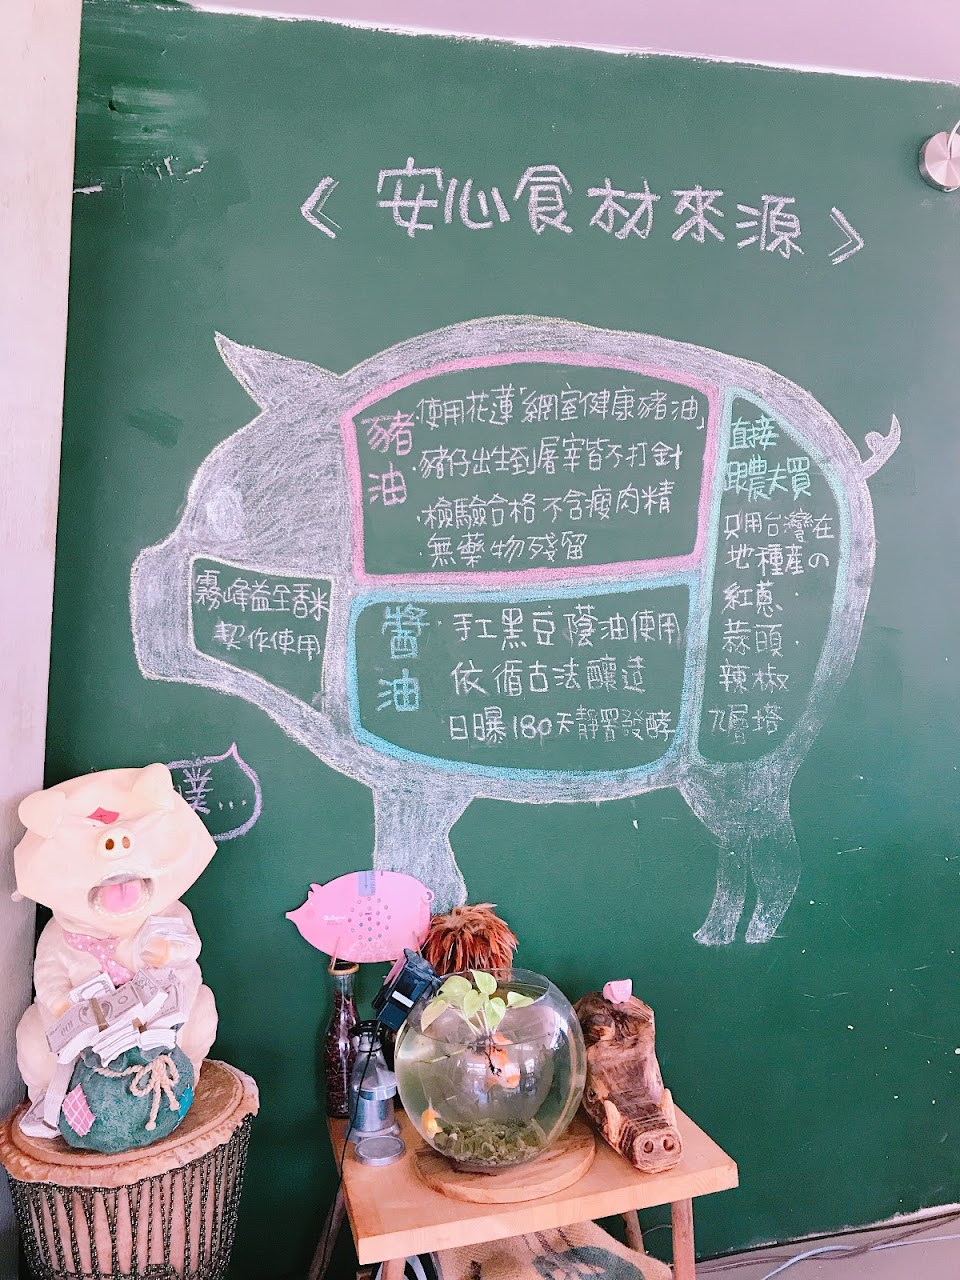 《 安心食材來源 》
豬油
·使用花蓮「網室健康豬油」
·豬仔出生到屠宰皆不打針
·檢驗合格不含瘦肉精
·無藥物殘留
直接
跟農夫買
只用台灣在
地種產の
紅蔥.
蒜頭.
辣椒
九層塔
霧峰益全香米
製作使用
醬油
·手工黑豆蔭油使用
依循古法釀造
日曝180天靜置發酵
僕...